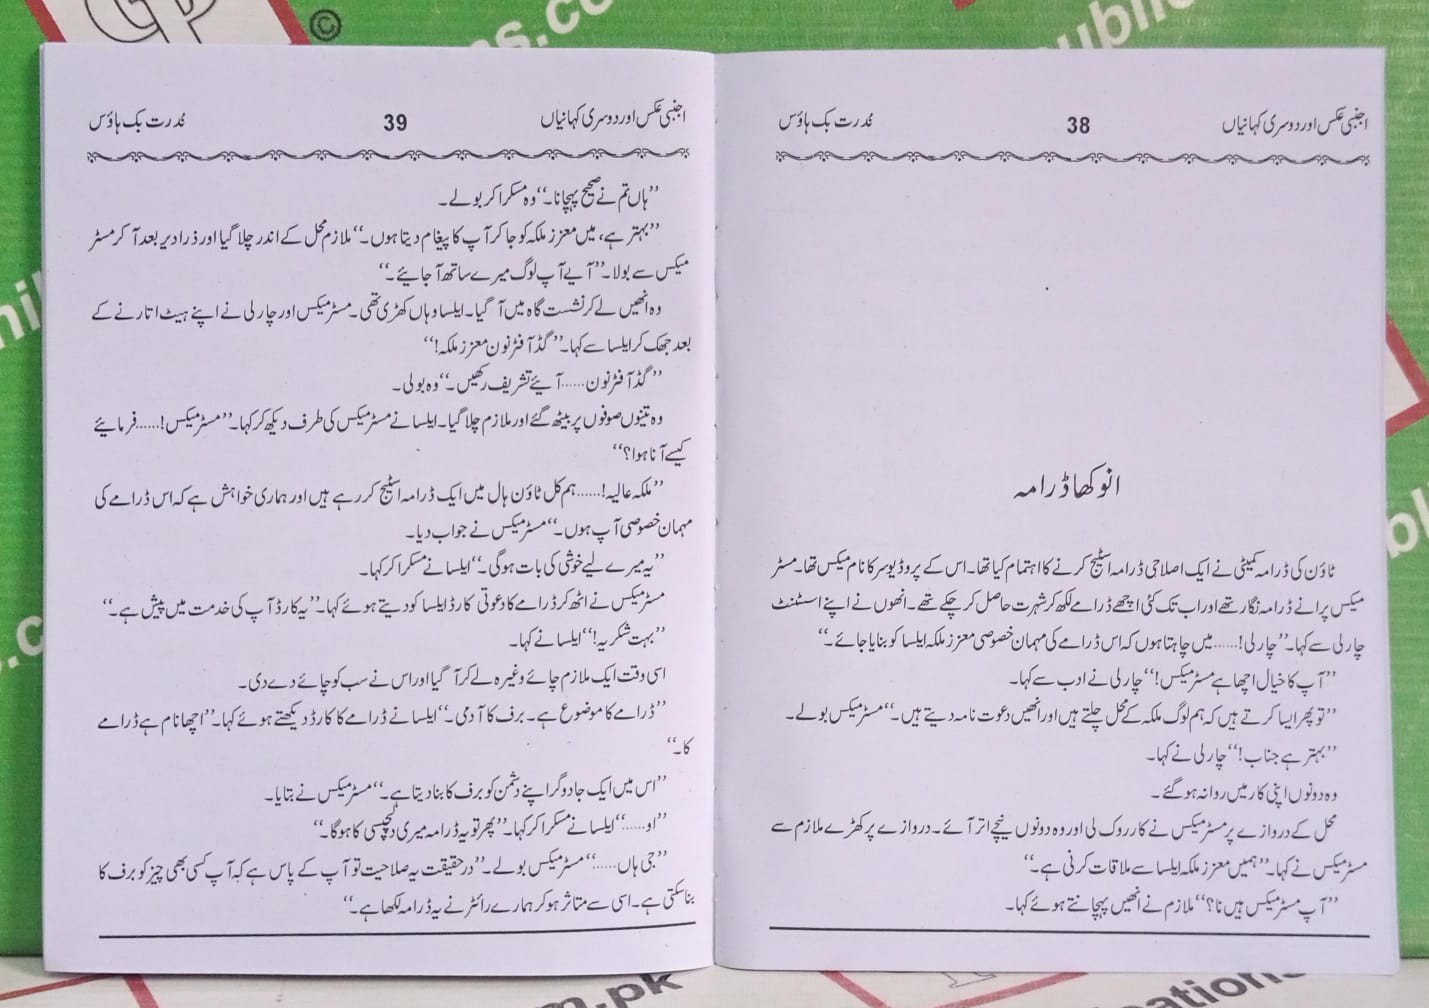 اجنبی عکس اور دوسری کہانیاں 38 نُدرت بک ہاؤس
انوکھا ڈرامہ
ٹاؤن کی ڈرامہ کمیٹی نے ایک اصلاحی ڈرامہ اسٹیج کرنے کا اہتمام کیا تھا۔ اس کے پروڈیوسر کا نام میکس تھا۔ مسٹر
میکس پرانے ڈرامہ نگار تھے اور اب تک کئی اچھے ڈرامے لکھ کر شہرت حاصل کر چکے تھے۔ انھوں نے اپنے اسسٹنٹ
چارلی سے کہا۔ ’’چارلی!...... میں چاہتا ہوں کہ اس ڈرامے کی مہمان خصوصی معزز ملکہ ایلسا کو بنایا جائے۔‘‘
’’آپ کا خیال اچھا ہے مسٹر میکس!‘‘ چارلی نے ادب سے کہا۔
’’تو پھر ایسا کرتے ہیں کہ ہم لوگ ملکہ کے محل چلتے ہیں اور انھیں دعوت نامہ دیتے ہیں۔‘‘ مسٹر میکس بولے۔
’’بہتر ہے جناب!‘‘ چارلی نے کہا۔
وہ دونوں اپنی کار میں روانہ ہو گئے۔
محل کے دروازے پر مسٹر میکس نے کار روک لی اور وہ دونوں نیچے اتر آئے۔ دروازے پر کھڑے ملازم سے
مسٹر میکس نے کہا۔ ’’ہمیں معزز ملکہ ایلسا سے ملاقات کرنی ہے۔‘‘
’’آپ مسٹر میکس ہیں نا؟‘‘ ملازم نے انھیں پہچانتے ہوئے کہا۔
اجنبی عکس اور دوسری کہانیاں 39 نُدرت بک ہاؤس
’’ہاں تم نے صحیح پہچانا۔‘‘ وہ مسکرا کر بولے۔
’’بہتر ہے، میں معزز ملکہ کو جا کر آپ کا پیغام دیتا ہوں۔‘‘ ملازم محل کے اندر چلا گیا اور ذرا دیر بعد آ کر مسٹر
میکس سے بولا۔ ’’آیے آپ لوگ میرے ساتھ آ جائیے۔‘‘
وہ انھیں لے کر نشست گاہ میں آ گیا۔ ایلسا وہاں کھڑی تھی۔ مسٹر میکس اور چارلی نے اپنے ہیٹ اتارنے کے
بعد جھک کر ایلسا سے کہا۔ ’’گڈ آفٹر نون معزز ملکہ!‘‘
’’گڈ آفٹر نون...... آیئے تشریف رکھیں۔‘‘ وہ بولی۔
وہ تینوں صوفوں پر بیٹھ گئے اور ملازم چلا گیا۔ ایلسا نے مسٹر میکس کی طرف دیکھ کر کہا۔ ’’مسٹر میکس!...... فرمایئے
کیسے آنا ہوا؟‘‘
’’ملکہ عالیہ!...... ہم کل ٹاؤن ہال میں ایک ڈرامہ اسٹیج کر رہے ہیں اور ہماری خواہش ہے کہ اس ڈرامے کی
مہمان خصوصی آپ ہوں۔‘‘ مسٹر میکس نے جواب دیا۔
’’یہ میرے لیے خوشی کی بات ہوگی۔‘‘ ایلسا نے مسکرا کر کہا۔
مسٹر میکس نے اٹھ کر ڈرامے کا دعوتی کارڈ ایلسا کو دیتے ہوئے کہا۔ ’’یہ کارڈ آپ کی خدمت میں پیش ہے۔‘‘
’’بہت شکریہ!‘‘ ایلسا نے کہا۔
اسی وقت ایک ملازم چائے وغیرہ لے کر آ گیا اور اس نے سب کو چائے دے دی۔
’’ڈرامے کا موضوع ہے۔ برف کا آدمی۔‘‘ ایلسا نے ڈرامے کا کارڈ دیکھتے ہوئے کہا۔ ’’اچھا نام ہے ڈرامے
کا۔‘‘
’’اس میں ایک جادوگر اپنے دشمن کو برف کا بنا دیتا ہے۔‘‘ مسٹر میکس نے بتایا۔
’’او......‘‘ ایلسا نے مسکرا کر کہا۔ ’’پھر تو یہ ڈرامہ میری دلچسپی کا ہوگا۔‘‘
’’جی ہاں......‘‘ مسٹر میکس بولے۔ ’’درحقیقت یہ صلاحیت تو آپ کے پاس ہے کہ آپ کسی بھی چیز کو برف کا
بنا سکتی ہے۔ اسی سے متاثر ہو کر ہمارے رائٹر نے یہ ڈرامہ لکھا ہے۔‘‘